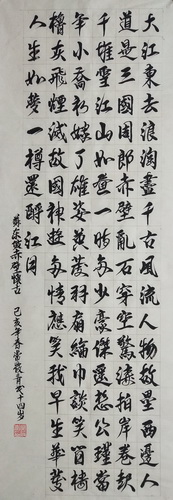 大江東去浪淘盡千古風流人物故壘西邊人
道是三國周郎赤壁亂石穿空驚濤拍岸卷起
千堆雪江山如畫一時多少豪傑遙想公瑾當
年小喬初嫁了雄姿英發羽扇綸巾談笑間檣
櫓灰飛煙滅故國神遊多情應笑我早生華髮
人生如夢一樽還酹江月
蘇東坡赤壁懷古
己亥年春 十四岁